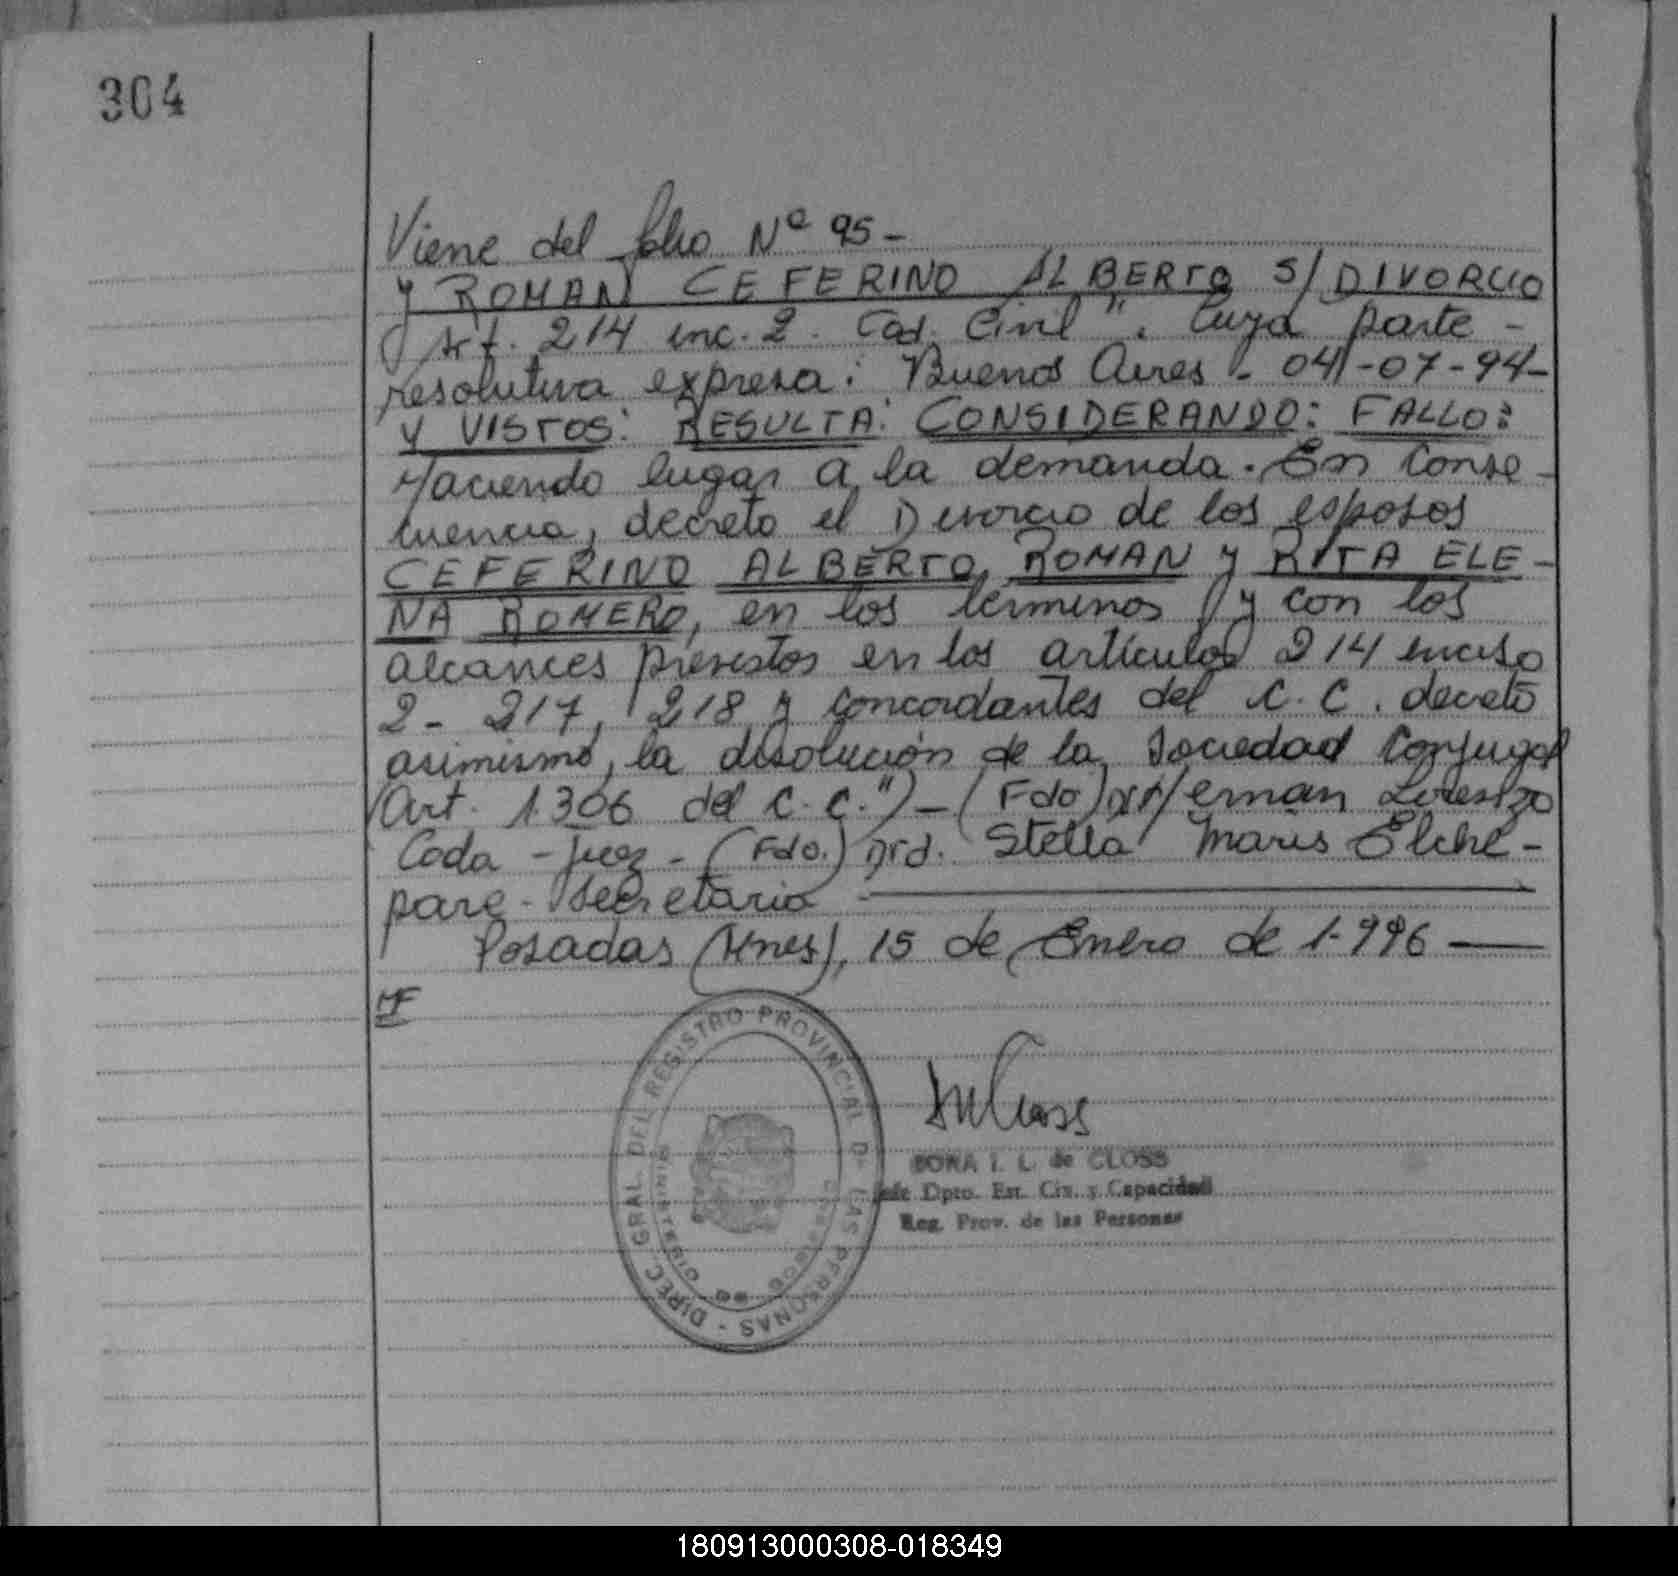 304
Viene del folio Nº 95-
y ROMAN CEFERINO ALBERTO S/DIVORCIO
Art. 214 inc. 2. Cod. Civil". Cuya parte -
resolutiva expresa: Buenos Aires - 04-07-94-
Y VISTOS: RESULTA: CONSIDERANDO: FALLO:
Haciendo lugar a la demanda. En Conse-
cuencia, decreto el Divorcio de los esposos
CEFERINO ALBERTO ROMAN y RITA ELE-
NA ROMERO, en los términos y con los
alcances previstos en los artículos 214 inciso
2- 217, 218 y concordantes del C. C. decreto
asimismo, la disolución de la Sociedad Conyugal
(Art. 1306 del C. C.")-(Fdo) Dr Hernan Lorenzo
Coda - Juez - (Fdo.) Dra. Stella Maris Elche-
pare - Secretaria
Posadas (Mnes), 15 de Enero de 1.996
MF
DIREC. GRAL. DEL REGISTRO PROVINCIAL DE LAS PERSONAS -
MINISTERIO DE GOBIERNO
I. L. de CLOSS
Jefe Dpto. Est. Civ. y Capacidad
Reg. Prov. de las Personas
180913000308-018349